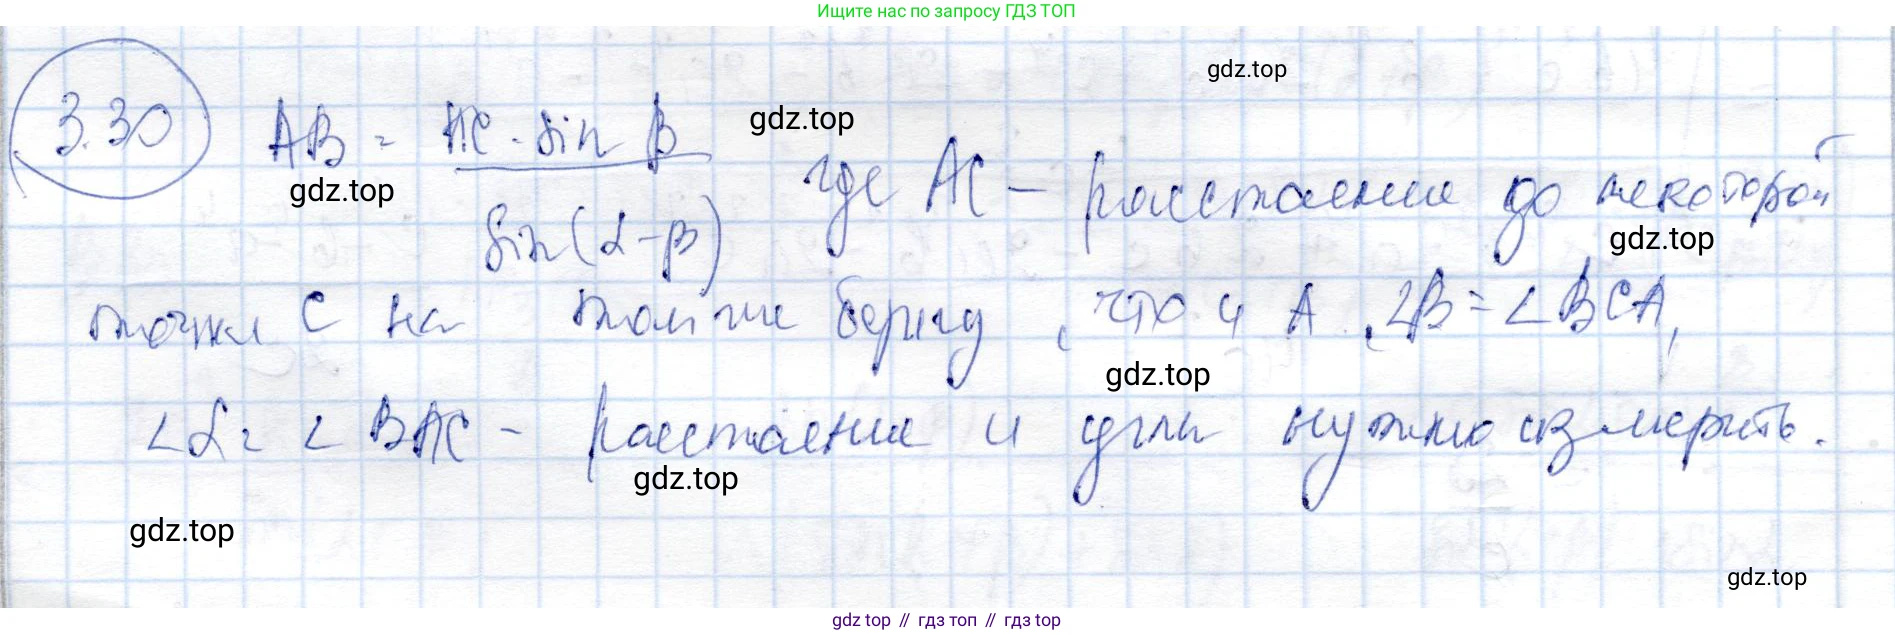 Ищите нас по запросу ГДЗ ТОП
gdz.top
3.30 AB = AC · sin β / sin(α - β) где AC - расстояние до некоторой
gdz.top
gdz.top
gdz.top
точки C на том же берегу, что и A, ∠β = ∠BCA,
gdz.top
∠α = ∠BAC - расстояние и углы нужно измерить.
gdz.top
gdz.top
gdz.top
gdz top // гдз топ // gdz top